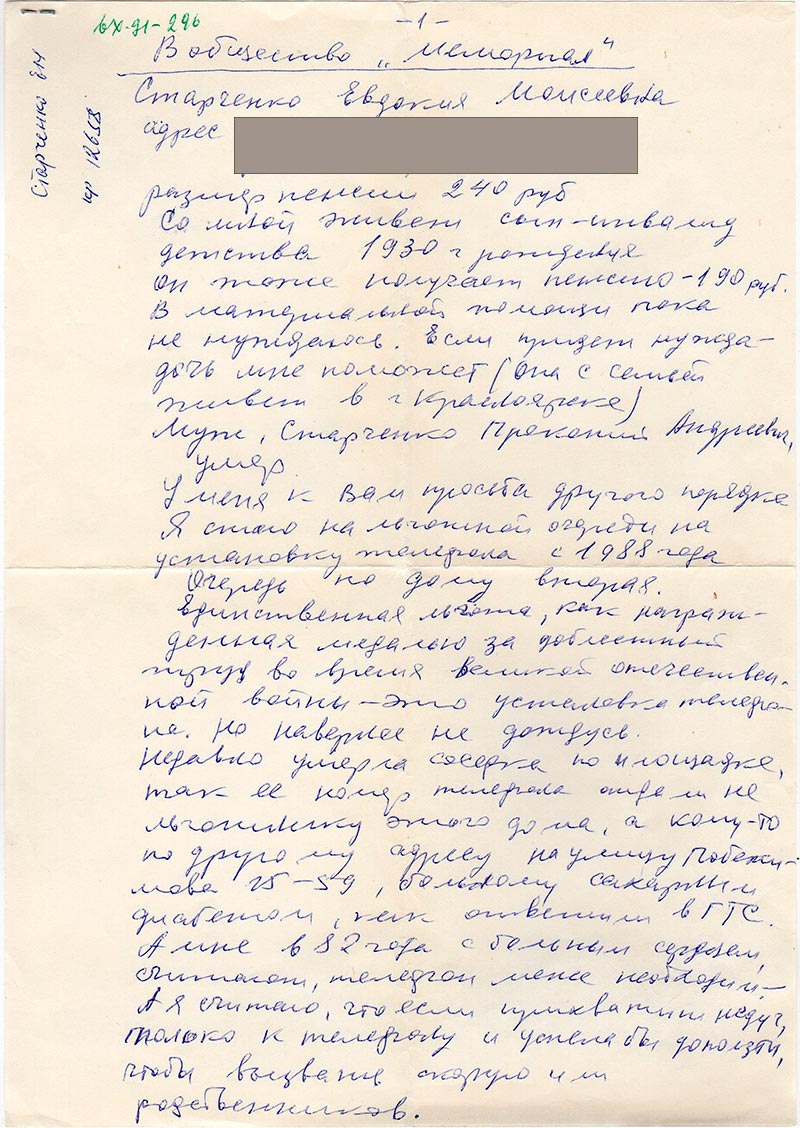 6X-91-296
-1-
В общество „Мемориал"
Старченко ЕМ
Старченко Евдокия Моисеевна
адрес
размер пенсии 240 руб
Со мной живет сын-инвалид
детства 1930 г рождения
Он тоже получает пенсию-190 руб.
В материальной помощи пока
не нуждаюсь. Если придет нужда-
дочь мне поможет (она с семьей
живет в г Красноярске)
Муж, Старченко Прокопий Андреевич,
умер
У меня к Вам просьба другого порядка
Я стою на льготной очереди на
установку телефона с 1988 года
Очередь по дому вторая.
Единственная льгота, как награж-
денная медалью за доблестный
труд во время великой отечествен-
ной войны-это установка телефо-
на. Но наверное не дождусь.
Недавно умерла соседка по площадке,
так ее номер телефона отдали не
льготнику этого дома, а кому-то
по другому адресу на улицу
15-59, больному сахарным
диабетом, как ответили в ГТС.
А мне в 82 года с больным сердцем,
считают, телефон менее необходим.-
А я считаю, что если прихватит недуг,
только к телефону и успела бы доползти,
чтобы вызвать скорую или
родственников.